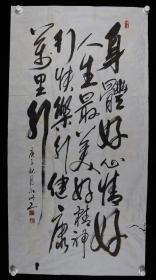 身體好心情好
人生最美好精神
行快樂行健康
萬里行
庚子秋月